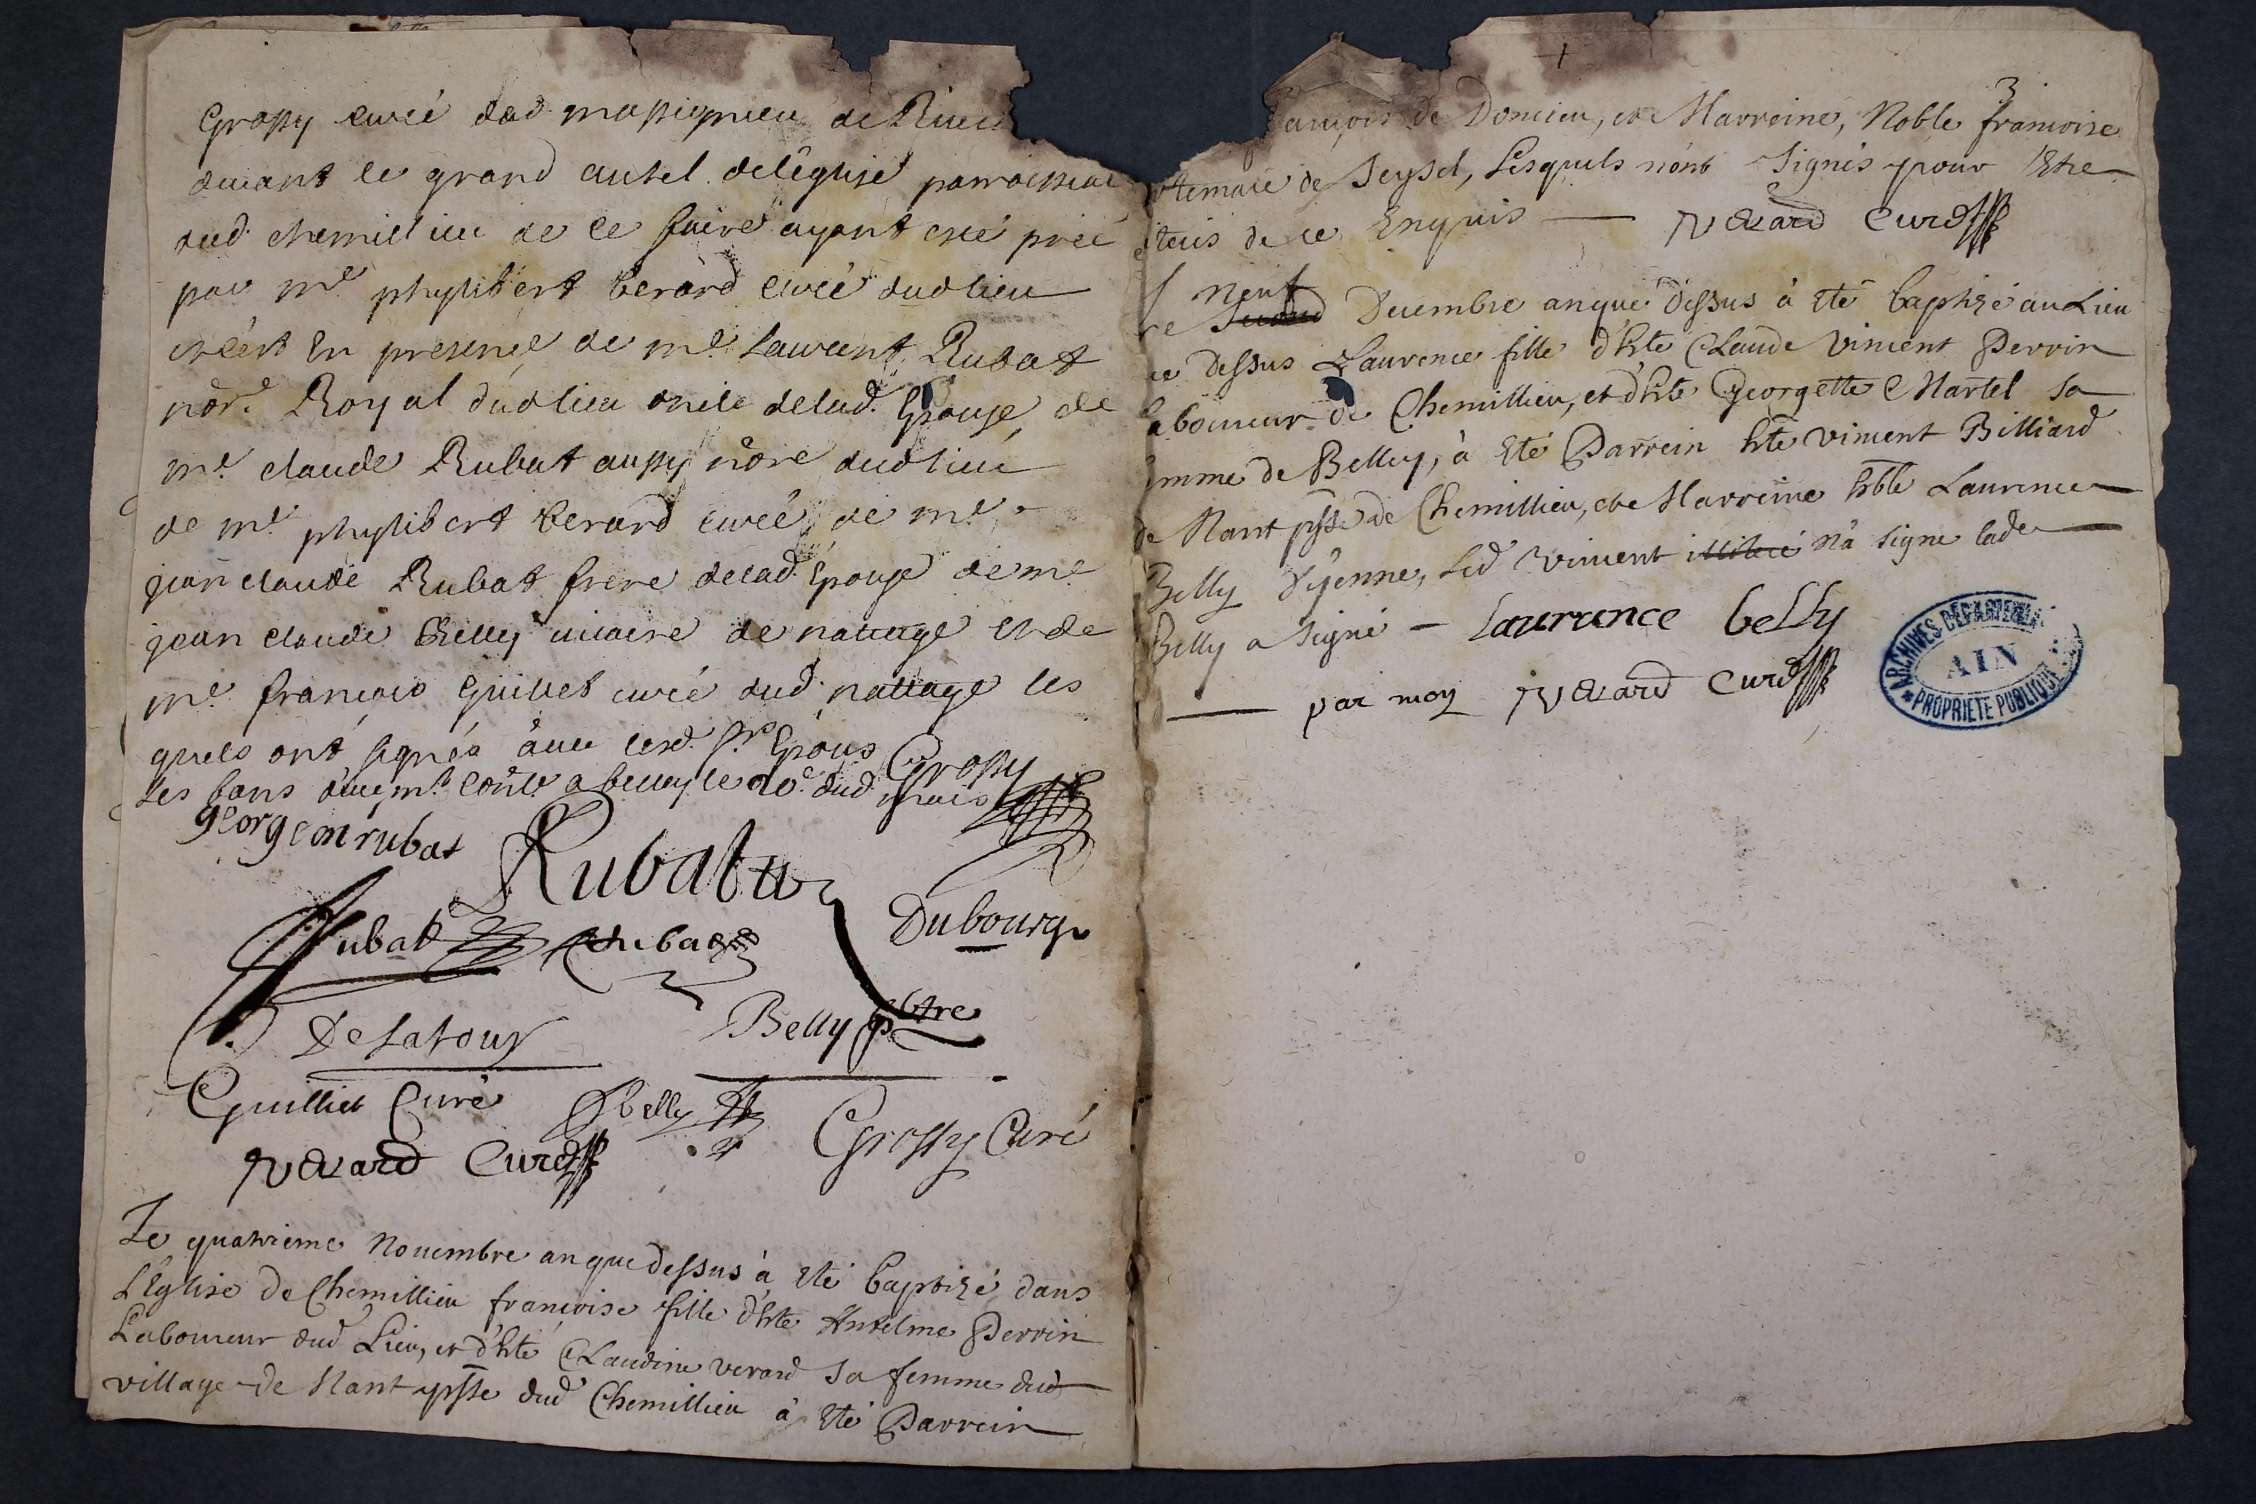 Grossy curé dud massignieu de Rives
devant le grand autel de léglise parroissial
dud. chemillieu de ce faire ayant esté prié
par mre phylibert berard curé dudlieu
et cest En presence de mre Laurent Rubat
nore. Royal dudlieu oncle delad. Epouse, de
mre claude Rubat aussy nore dudlieu
de mre phylibert berard curé, de mre
jean claude Rubat frere delad. Epouse de mre
jean claude Belly vicaire de nattage et de
mre françois Guillet curé dud. nattage les
quels ont signés avec lesd. Srs Epous
Les bans a belley le dud. mois
Grossy
georgem rubat
Rubat
Rubat
Rubat
Dubourg
Delatour
Belly pbtre
Guilliet Curé
belly
Grossy Curé
Verard Curé
Le quatrieme Novembre an que dessus à eté baptizé dans
L'Eglise de Chemillieu francoise fille d'hte Antelme Perrin
Laboureur dud Lieu, et d'hte Claudine verard sa femme dud
village de Nant psse dud Chemillieu à eté Parrein
3
ançois de Domieu, et Marreine, Noble francoise
de Seysel, Lesquels n'ont signés pour Etre
de ce Enquis — Verard Curé
neuf
ce second Decembre an que dessus à eté baptizé au Lieu
ce dessus Laurence fille d'hte Claude Vincent Perrin
laboureur de Chemillieu, et d'hte Georgette Martel sa
emme de Belley, à eté Parrein hte vincent Billiard
de Nant psse de Chemillieu, et Marreine hble Laurence
Belly d'yenne, Led vincent illiteré n'a signe lade
Belly a signé — laurance belly
— par moy Verard Curé
ARCHIVES DEPARTEMENTALES
AIN
* PROPRIETE PUBLIQUE